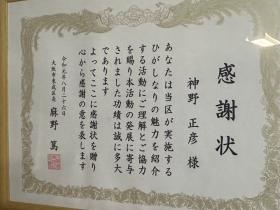 感謝状
神野 正彦 様
あなたは当区が実施する
ひがしなりの魅力を紹介
する活動にご理解とご協力
を賜り本活動の発展に寄与
されました功績は誠に多大
であります
よってここに感謝状を贈り
心から感謝の意を表します
令和元年八月二十六日
大阪市東成区長 麻野 篤